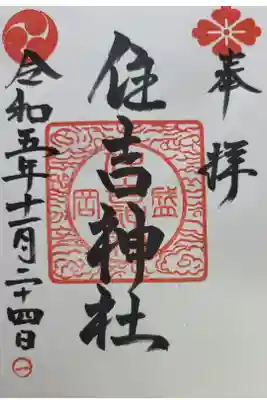 奉拝
住吉神社
盛岡
令和五年十一月二十四日